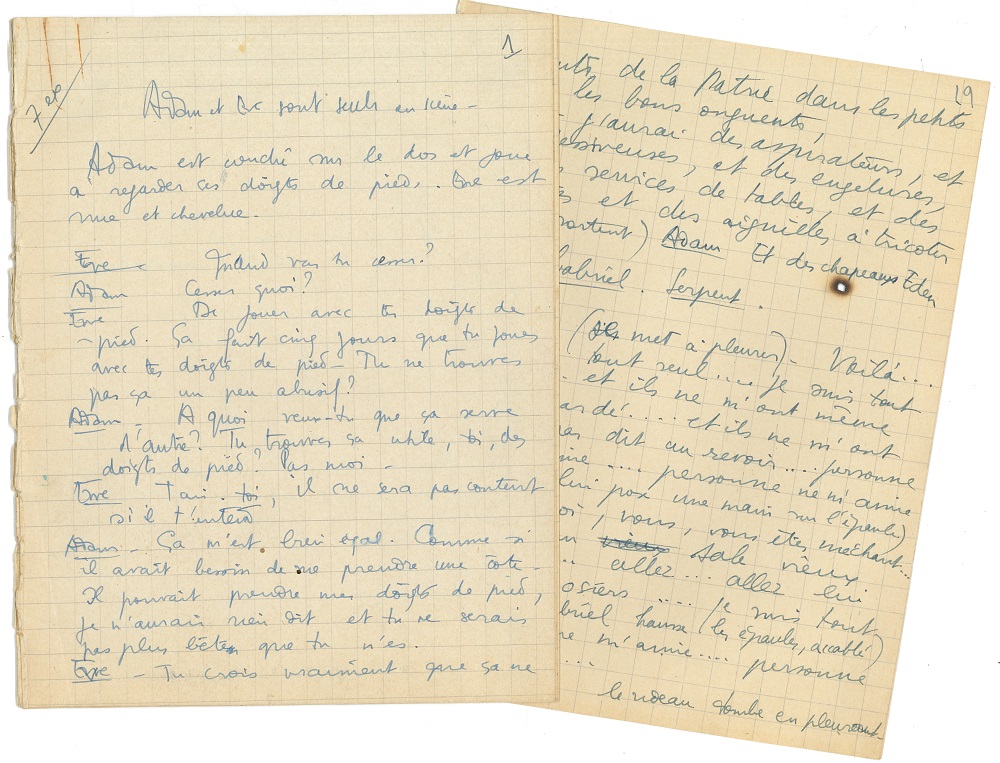 1
Adam et Eve sont seuls en scène -
Adam est couché sur le dos et joue
a regarder ses doigts de pieds. Eve est
nue et chevelue.
Eve Quand vas tu cesser?
Adam Cesser quoi?
Eve De jouer avec tes doigts de
pied. Ça fait cinq jours que tu joues
avec tes doigts de pied - Tu ne trouves
pas ça un peu abusif?
Adam - A quoi veux-tu que ça serve
d'autre? Tu trouves ça utile, toi, des
doigts de pied? Pas moi -
Eve Tais-toi, il ne sera pas content
si il t'entend
Adam - Ça m'est bien égal. Comme si
il avait besoin de me prendre une côte -
Il pouvait prendre mes doigts de pied,
je n'aurais rien dit et tu ne serais
pas plus bête que tu n'es.
Eve - Tu crois vraiment que ça ne
19
de la Patrie dans les petits
les bons onguents,
j'aurai des aspirateurs, et
et des engelures,
services de tables, et des
et des aiguilles à tricoter
sortent) Adam Et des chapeaux Eden
Gabriel. Serpent.
(se met à pleurer) - Voilà...
tout seul.... je suis tout
et ils ne m'ont même
.... et ils ne m'ont
pas dit au revoir.... personne
.... personne ne m'aime
lui pose une main sur l'épaule)
, vous, vous êtes méchant...
vieux sale vieux
.. allez.... allez lui
.... je suis tout
hausse les épaules, accablé)
m'aime.... personne
...
le rideau tombe en pleurant -